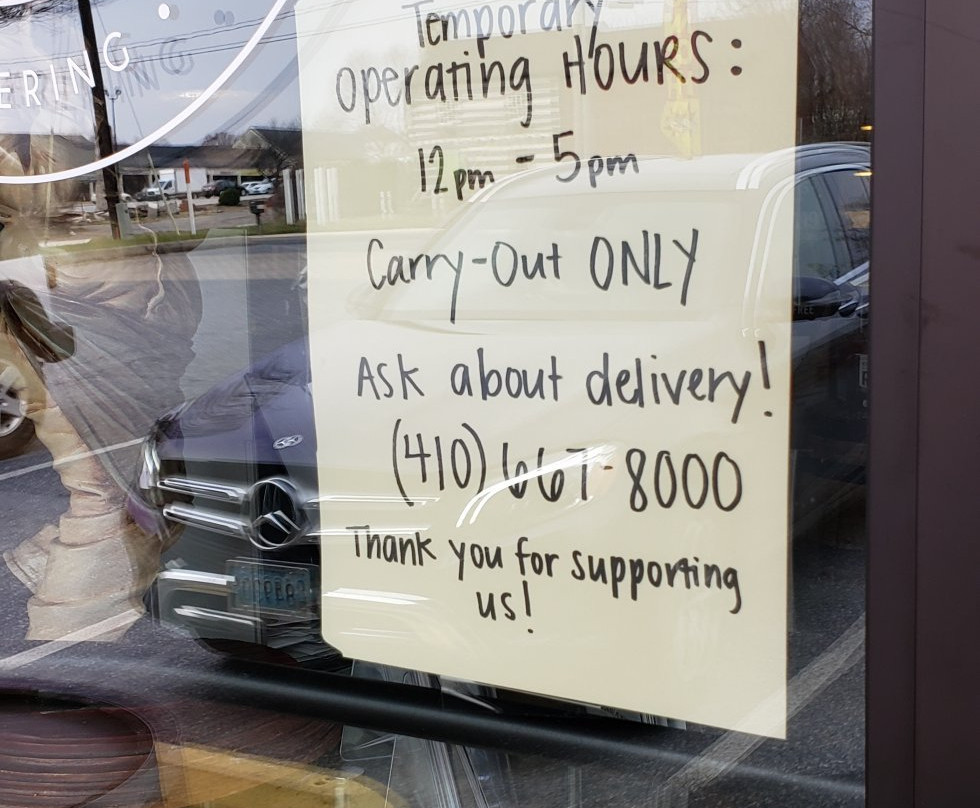 ERING
Temporary
operating HOURS:
12pm - 5pm
Carry-Out ONLY
Ask about delivery!
(410) 667-8000
Thank you for supporting
us!